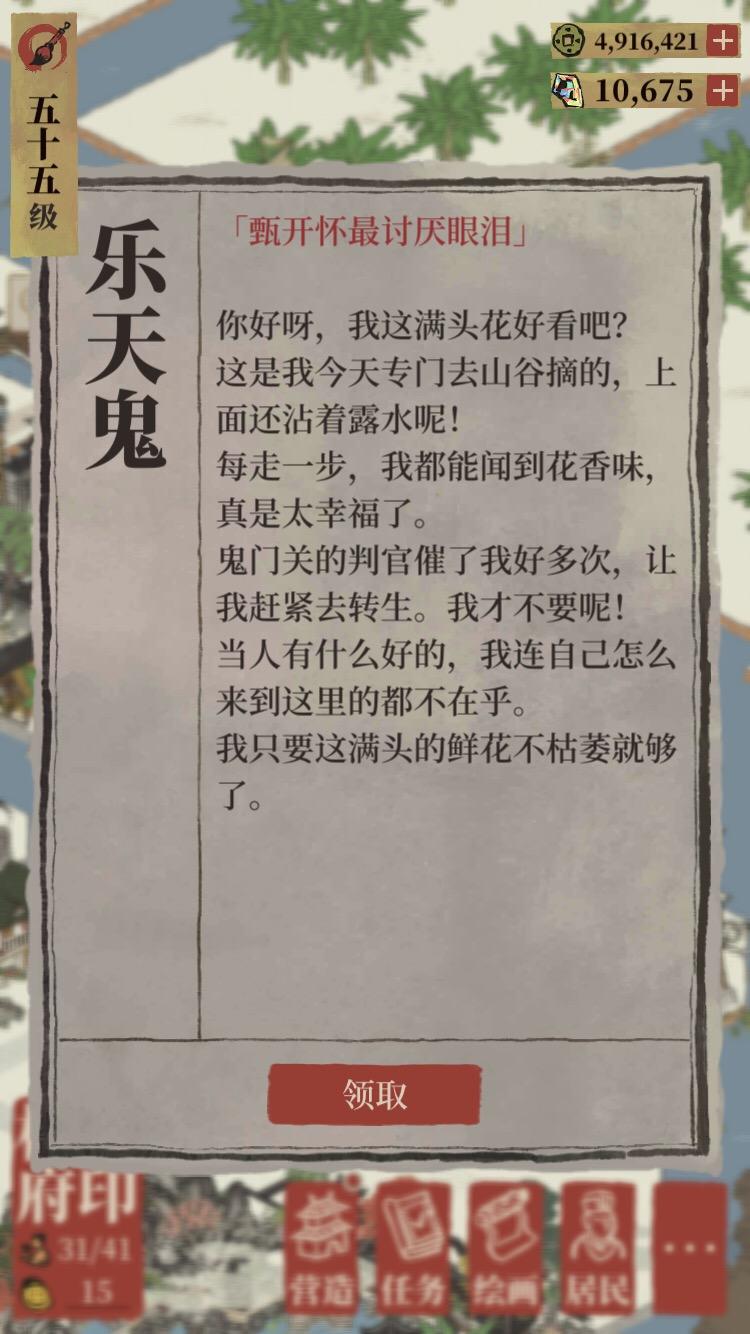 五十五级
4,916,421
10,675
乐天鬼
「甄开怀最讨厌眼泪」
你好呀，我这满头花好看吧？
这是我今天专门去山谷摘的，上
面还沾着露水呢！
每走一步，我都能闻到花香味，
真是太幸福了。
鬼门关的判官催了我好多次，让
我赶紧去转生。我才不要呢！
当人有什么好的，我连自己怎么
来到这里的都不在乎。
我只要这满头的鲜花不枯萎就够
了。
领取
府印
31/41
15
营造
任务
绘画
居民